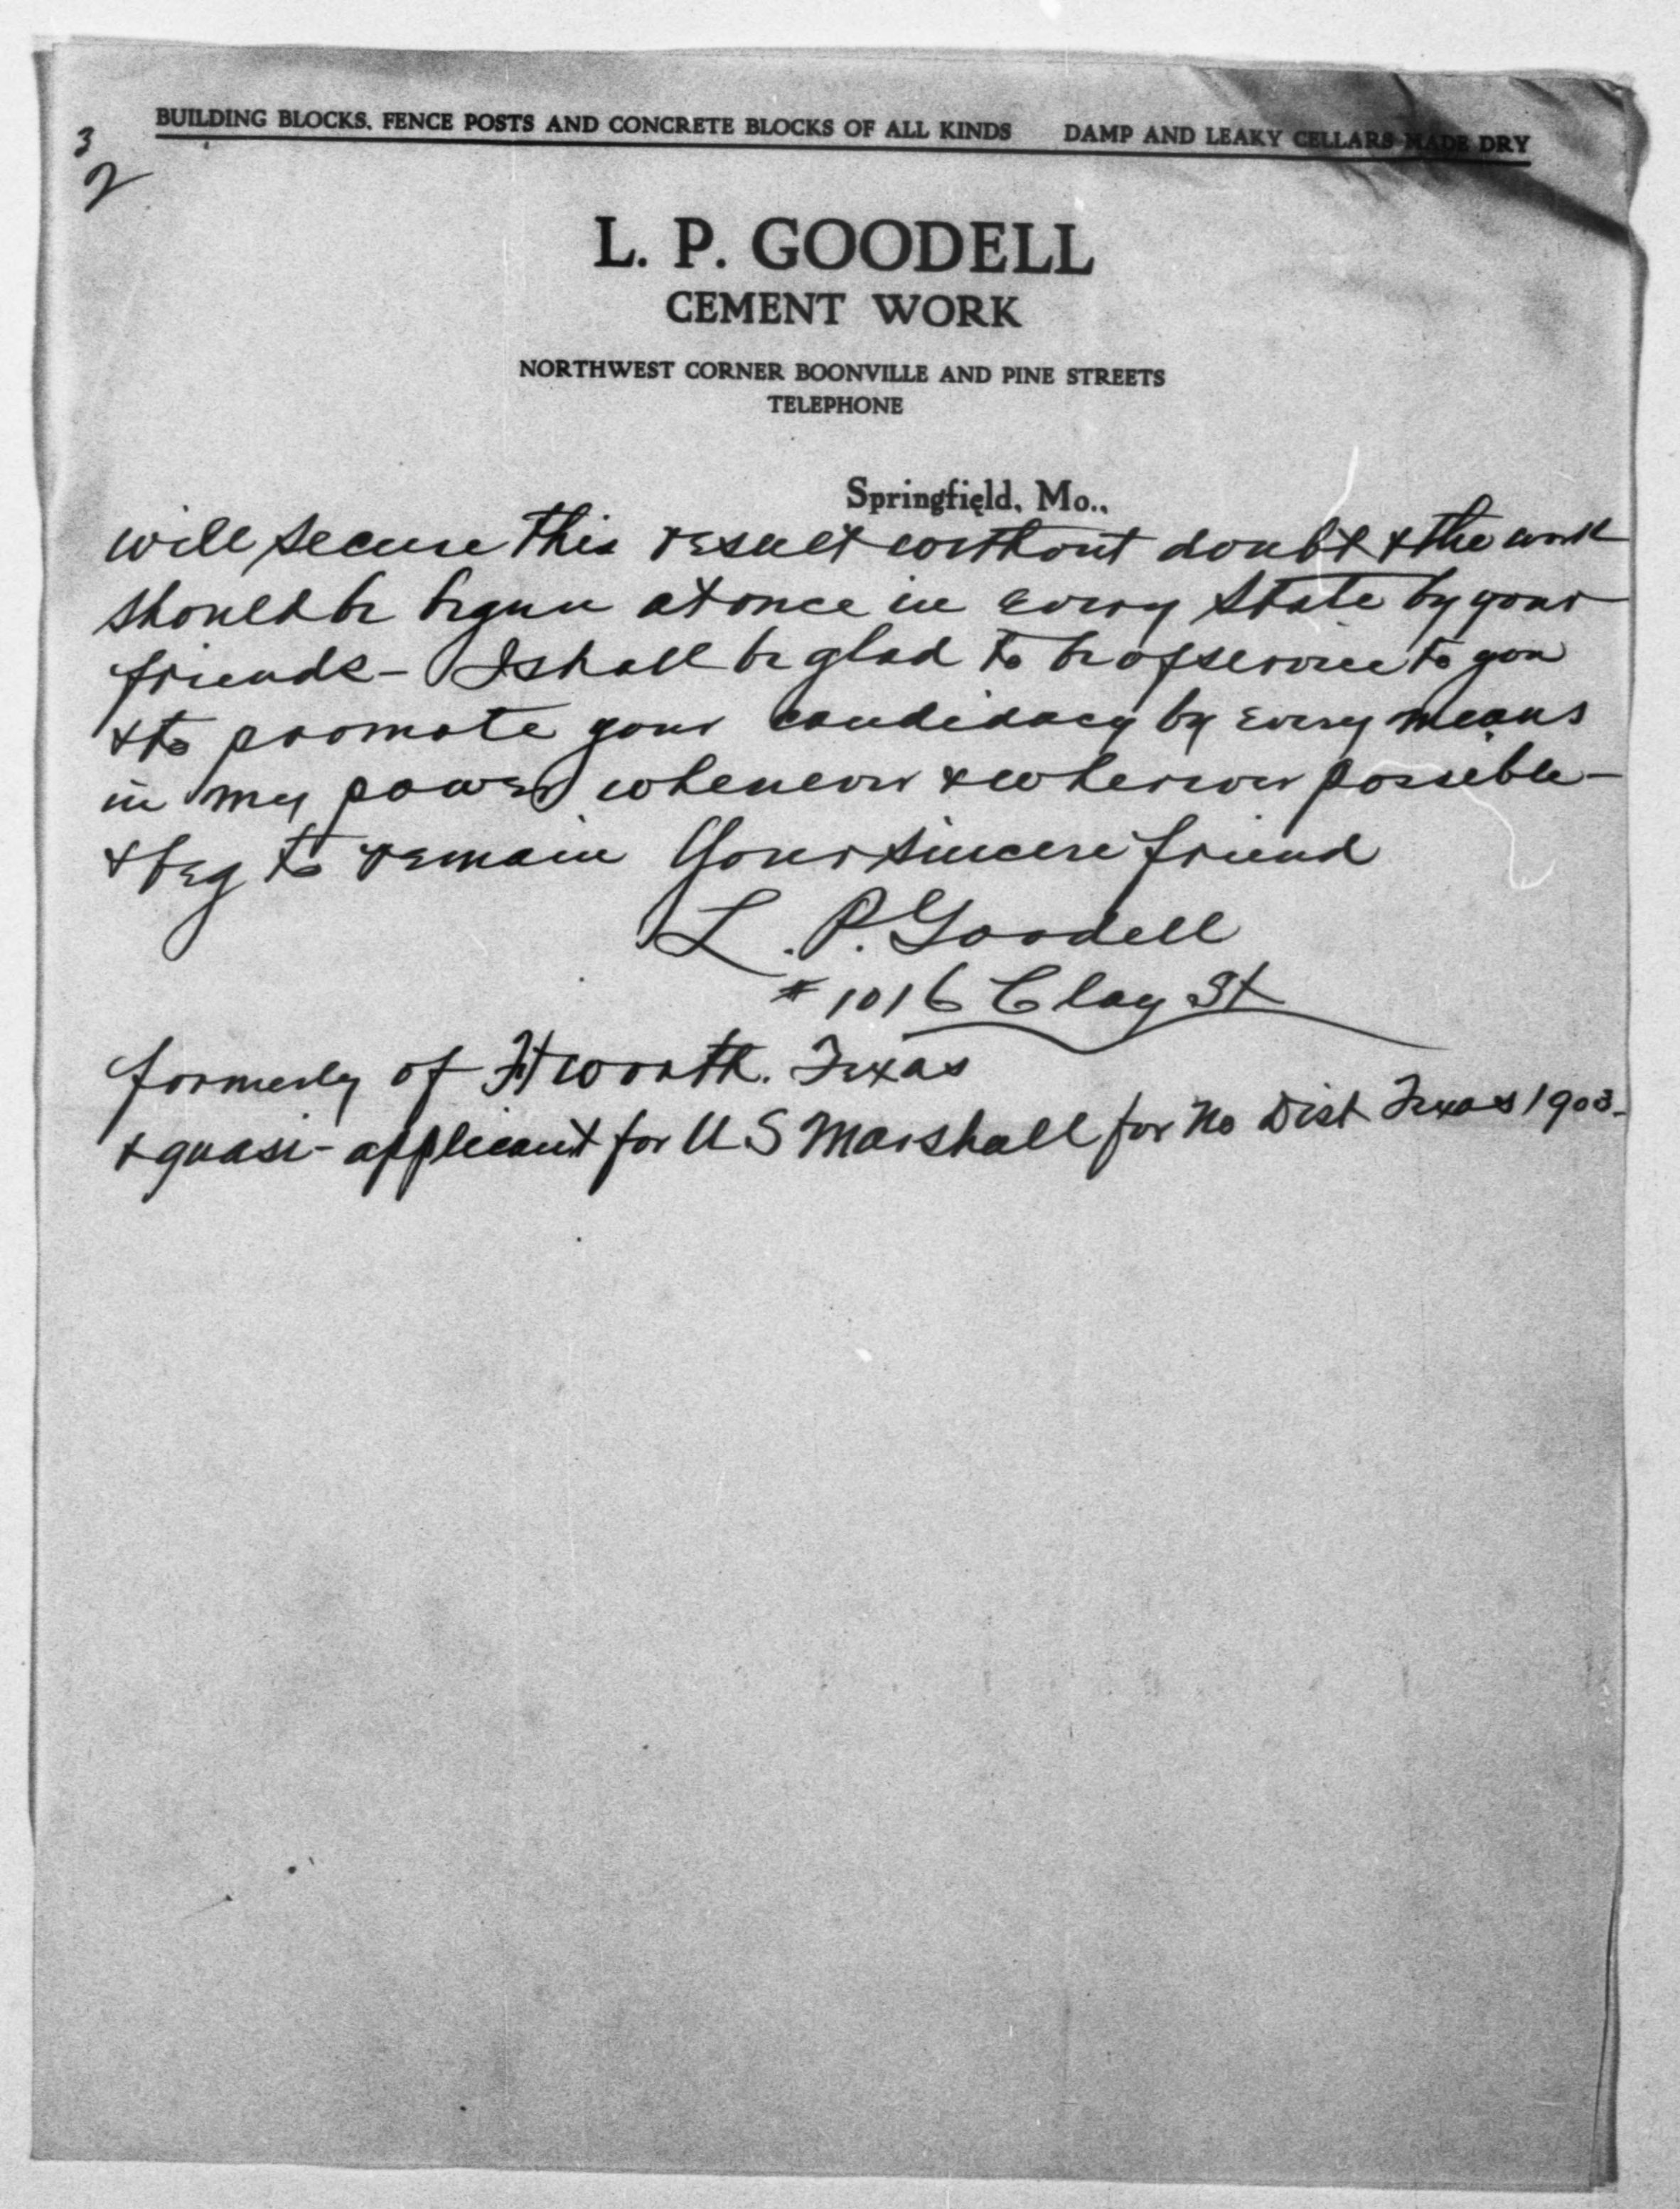 3
BUILDING BLOCKS, FENCE POSTS AND CONCRETE BLOCKS OF ALL KINDS DAMP AND LEAKY CELLARS MADE DRY
2
L. P. GOODELL
CEMENT WORK
NORTHWEST CORNER BOONVILLE AND PINE STREETS
TELEPHONE
Springfield, Mo.,
will secure this result without doubt & the work
should be begun at once in every State by your
friends - I shall be glad to be of service to you
& to promote your candidacy by every means
in my power whenever & wherever possible -
& beg to remain Your sincere friend
L. P. Goodell
# 1016 Clay St
formerly of Ft Worth. Texas
& quasi - applicant for U S Marshall for No Dist Texas 1903 -